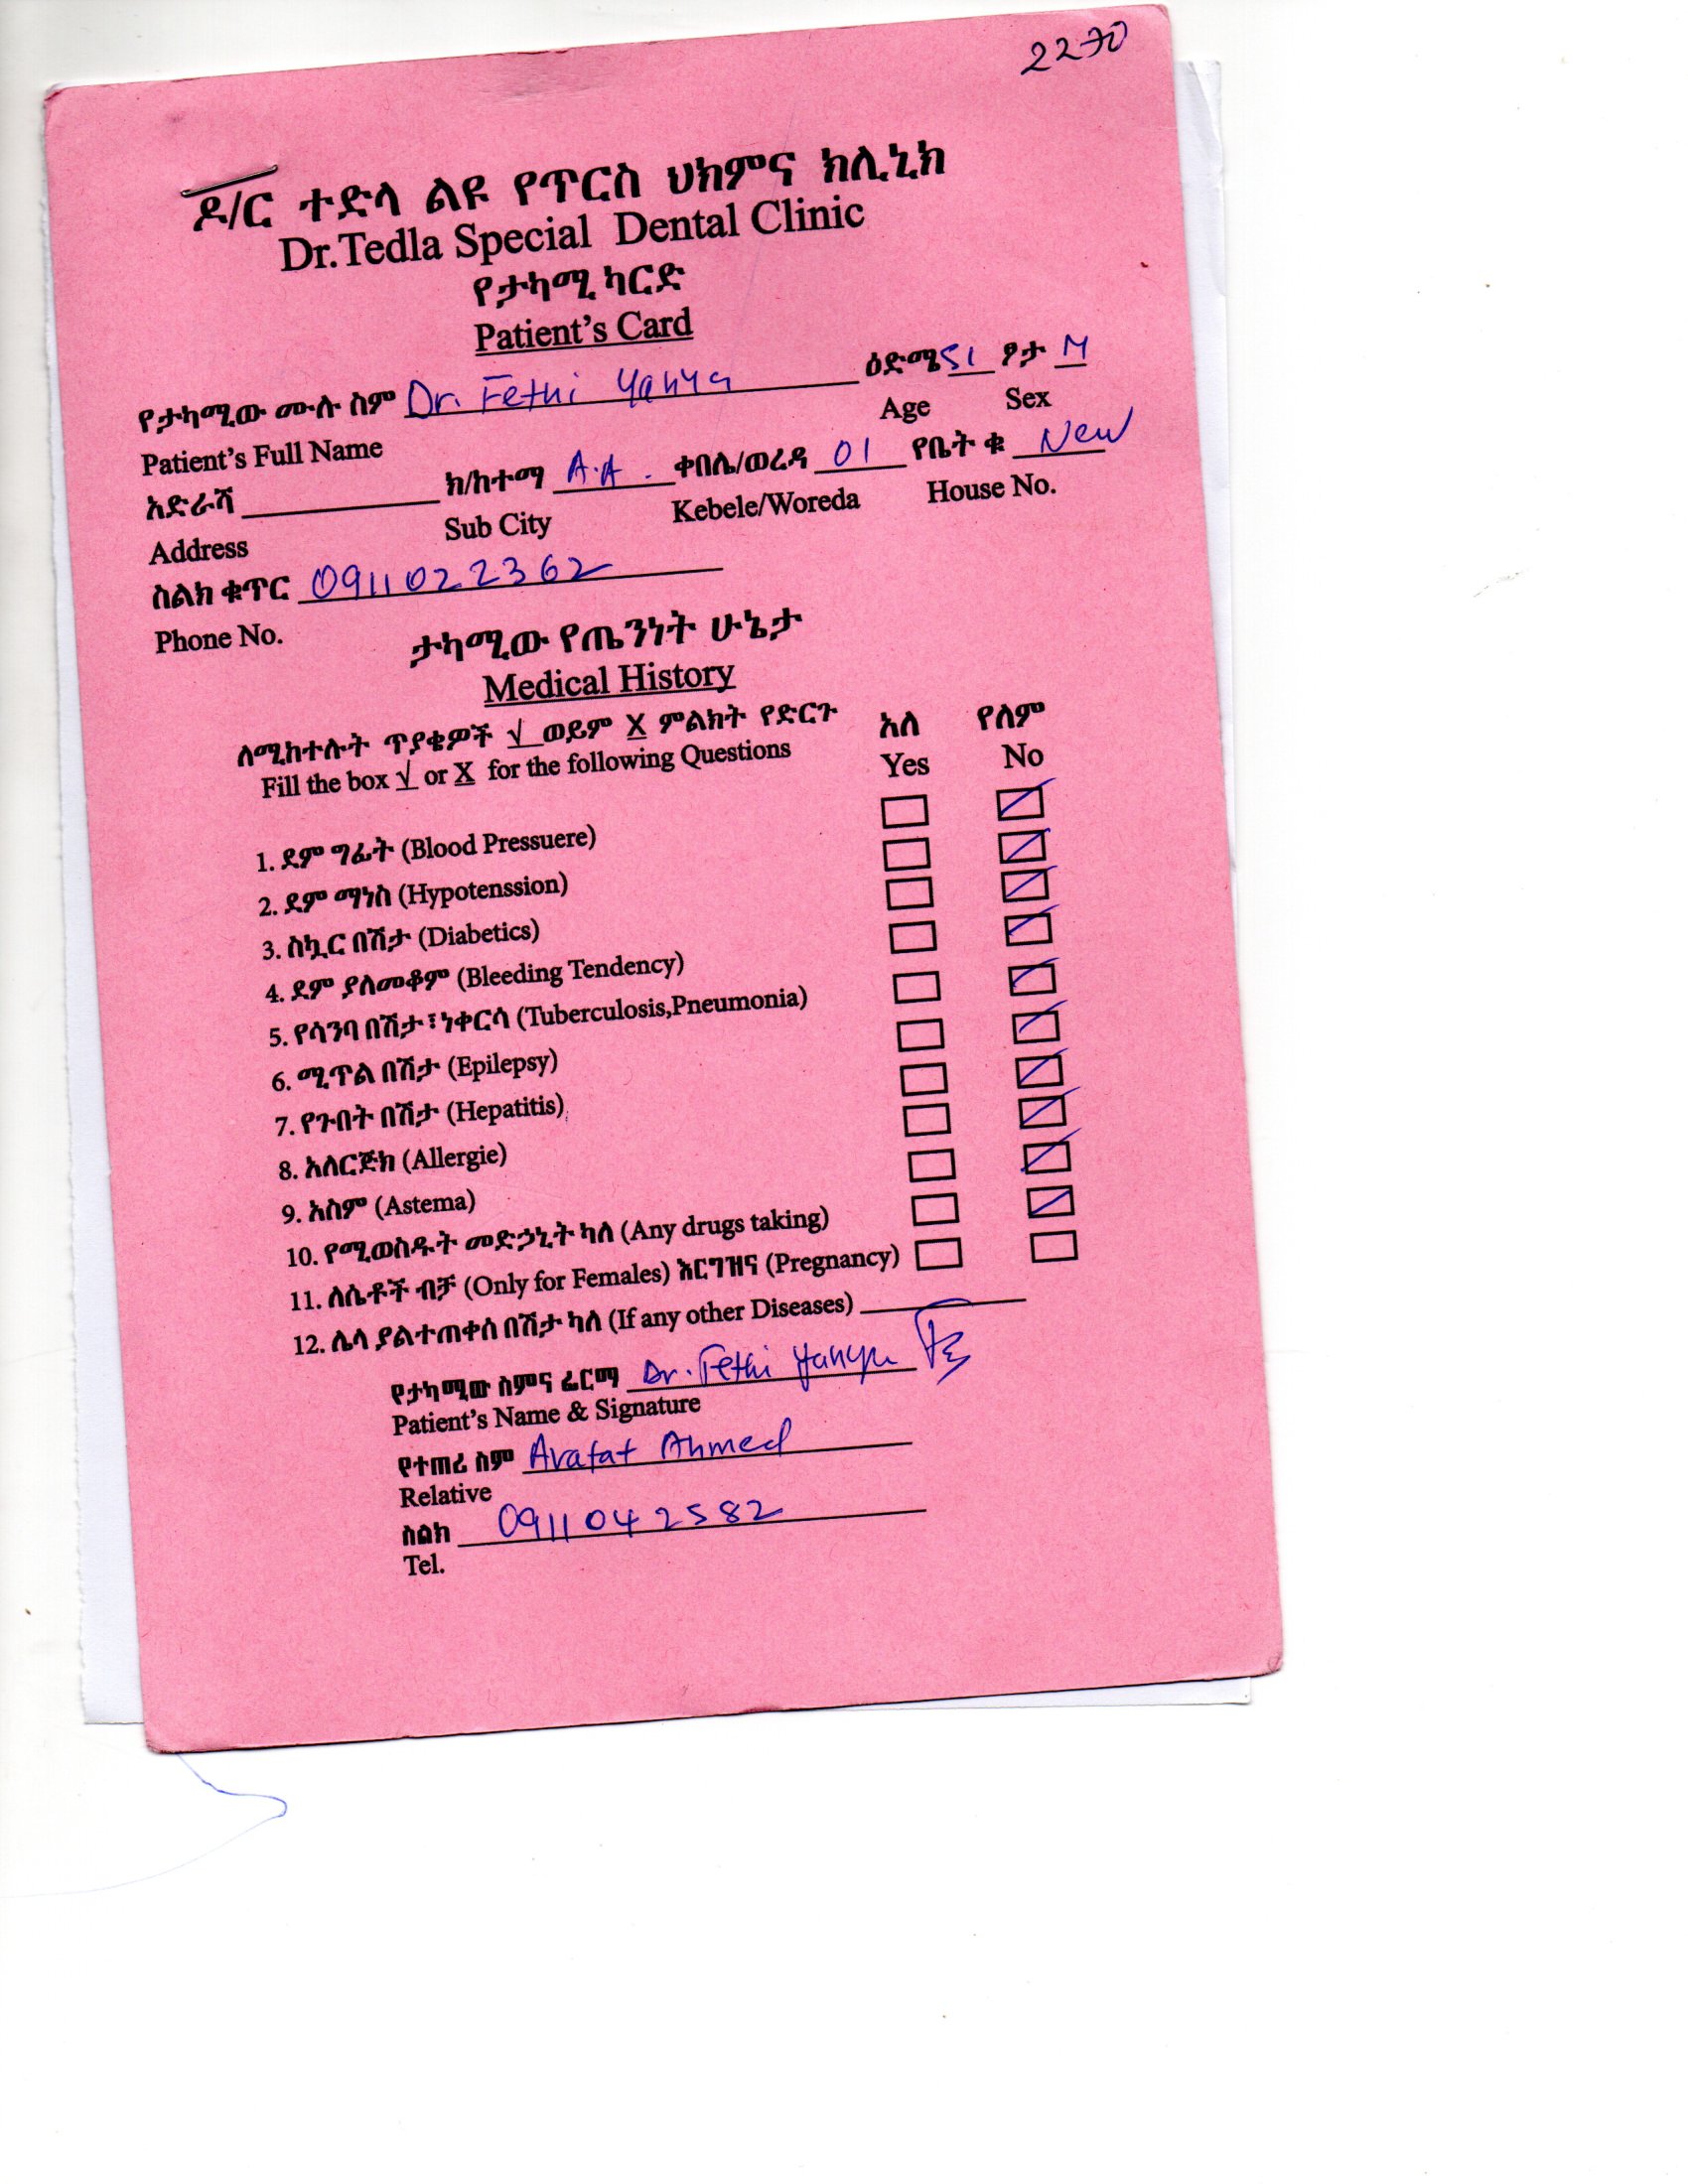 2270
ዶ/ር ተድላ ልዩ የጥርስ ህክምና ክሊኒክ
Dr.Tedla Special Dental Clinic
የታካሚ ካርድ
Patient's Card
የታካሚው ሙሉ ስም Dr. Fethi Yahya ዕድሜ 51 ፆታ M
Patient's Full Name Age Sex
አድራሻ ክ/ከተማ A.A. ቀበሌ/ወረዳ 01 የቤት ቁ New
Address Sub City Kebele/Woreda House No.
ስልክ ቁጥር 0911022362
Phone No.
ታካሚው የጤንነት ሁኔታ
Medical History
ለሚከተሉት ጥያቄዎች √ ወይም X ምልክት የድርጉ አለ የለም
Fill the box √ or X for the following Questions Yes No
1. ደም ግፊት (Blood Pressuere)
2. ደም ማነስ (Hypotenssion)
3. ስኳር በሽታ (Diabetics)
4. ደም ያለመቆም (Bleeding Tendency)
5. የሳንባ በሽታ፣ነቀርሳ (Tuberculosis,Pneumonia)
6. ሚጥል በሽታ (Epilepsy)
7. የጉበት በሽታ (Hepatitis)
8. አለርጅክ (Allergie)
9. አስም (Astema)
10. የሚወስዱት መድኃኒት ካለ (Any drugs taking)
11. ለሴቶች ብቻ (Only for Females) እርግዝና (Pregnancy)
12. ሌላ ያልተጠቀሰ በሽታ ካለ (If any other Diseases)
የታካሚው ስምና ፊርማ Dr. Fethi Yahya
Patient's Name & Signature
የተጠሪ ስም Arafat Ahmed
Relative
ስልክ 0911042582
Tel.